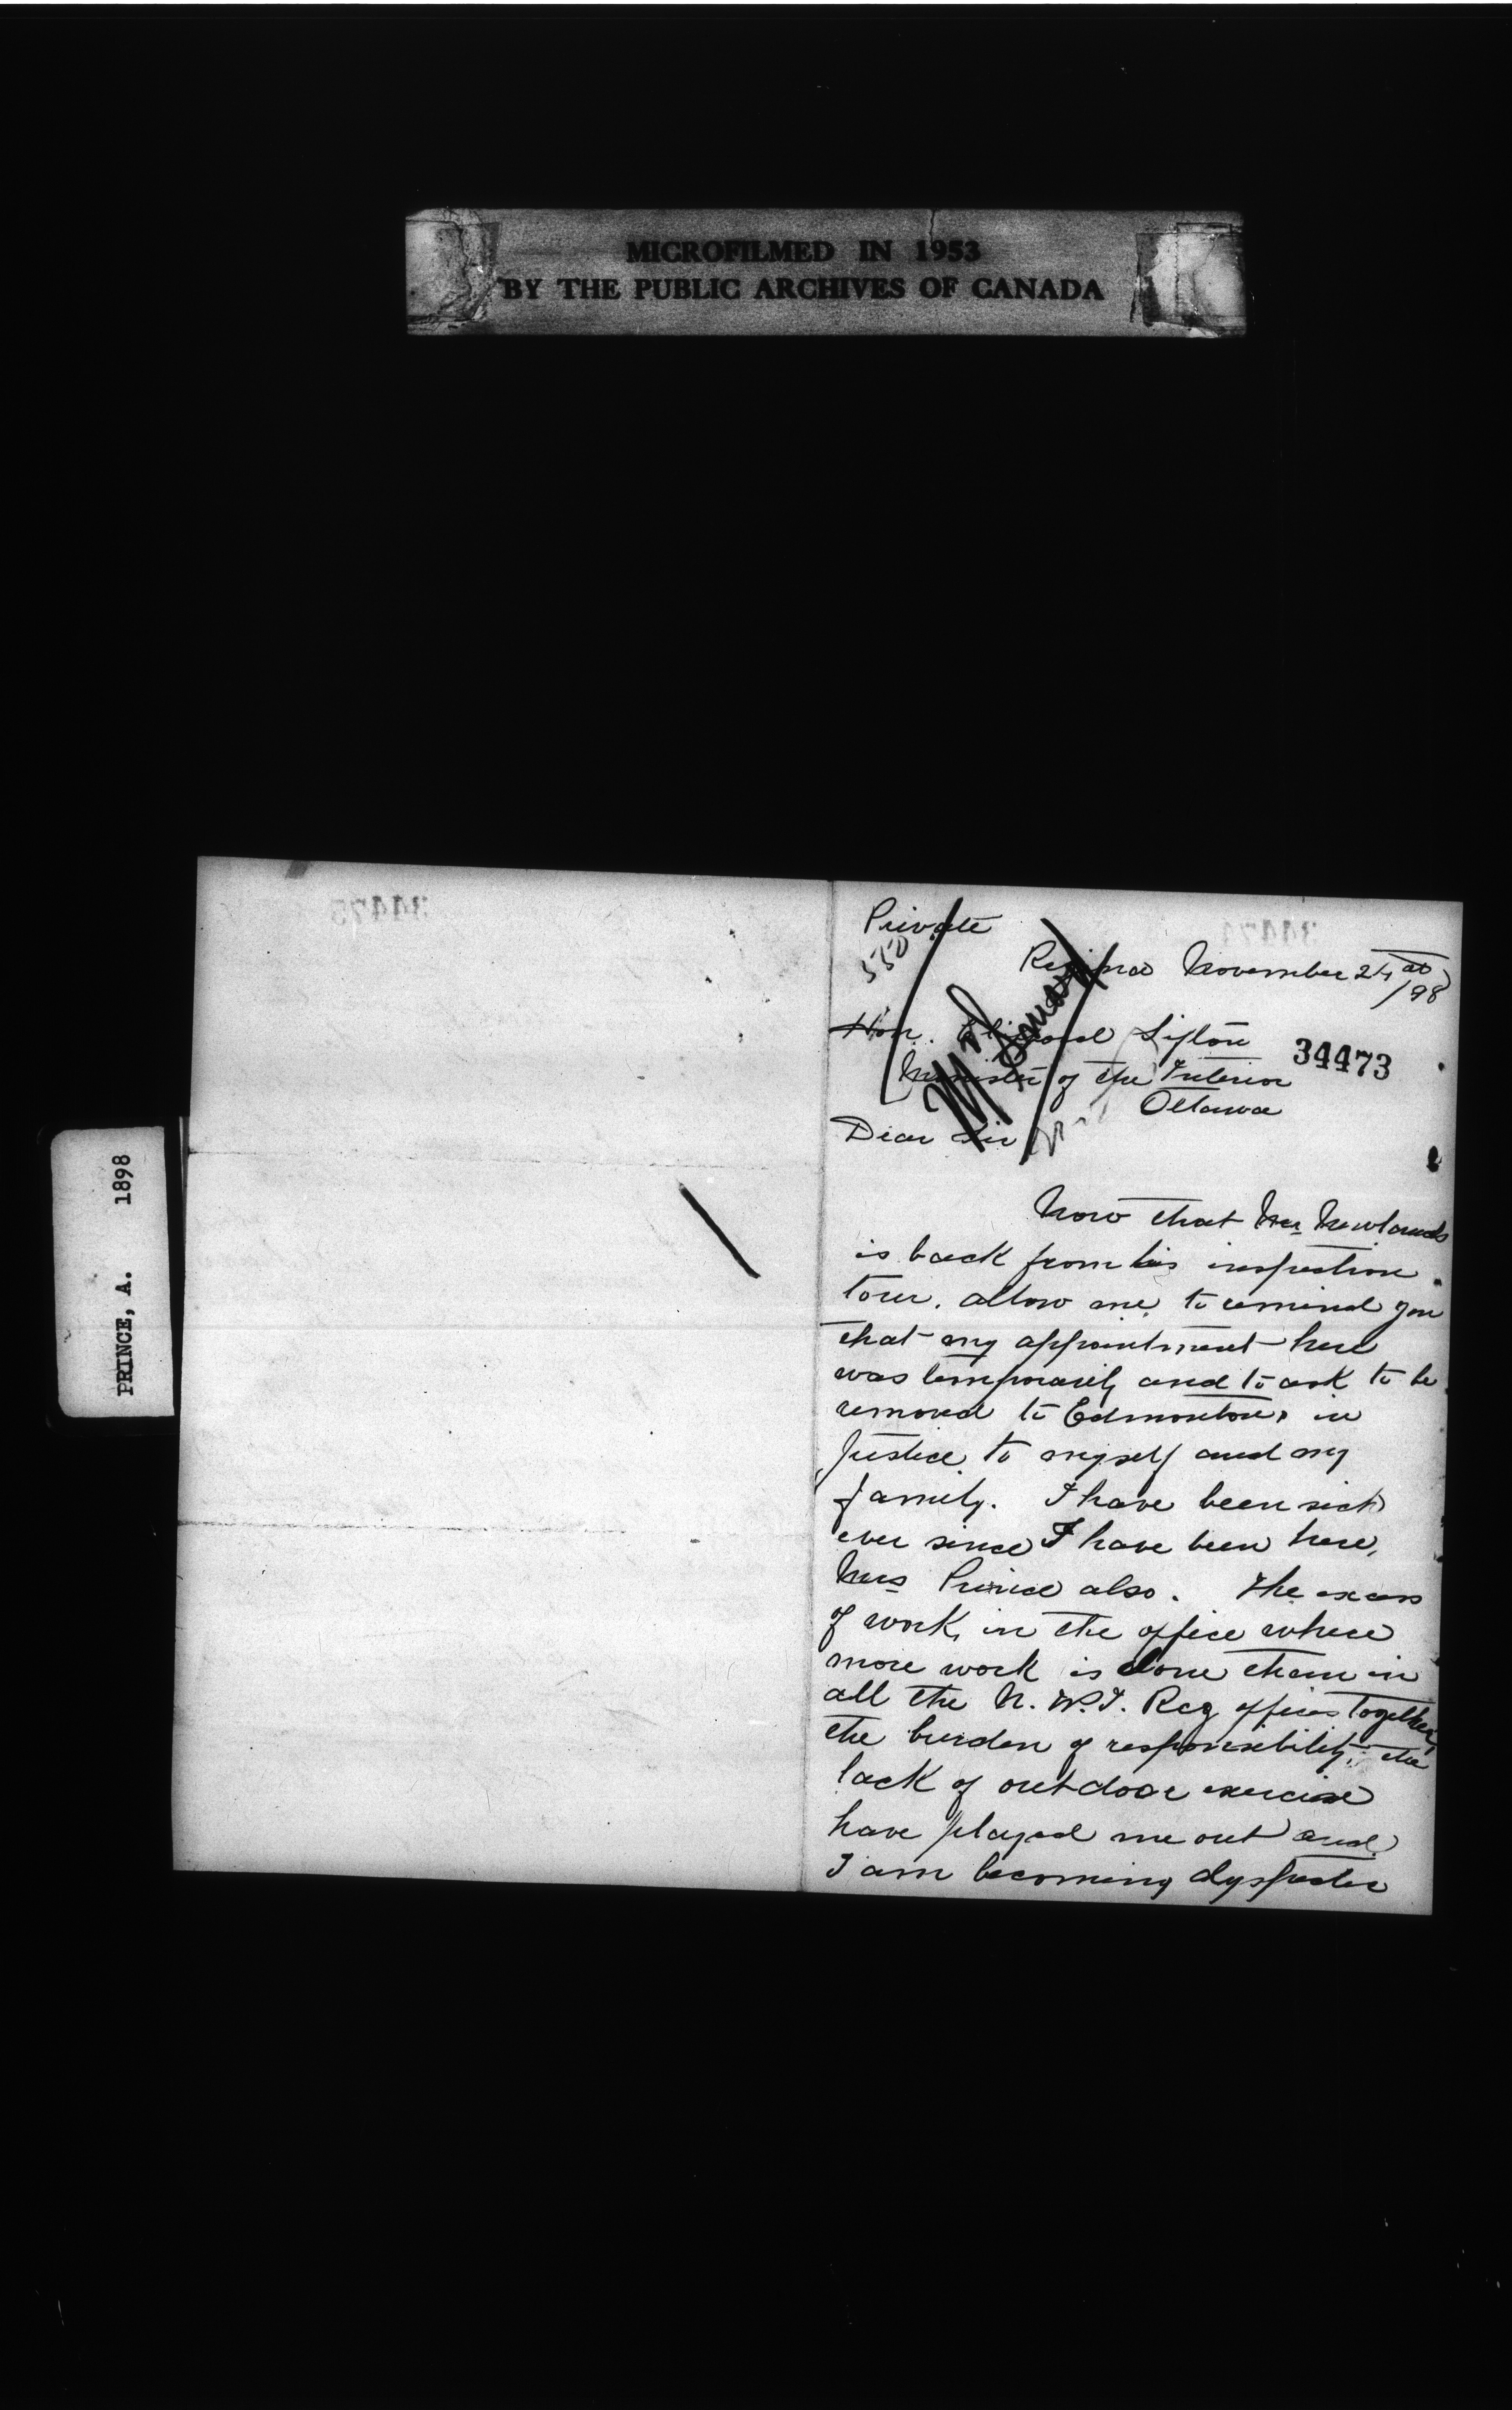 MICROFILMED IN 1953
BY THE PUBLIC ARCHIVES OF CANADA
PRINCE, A. 1898
Private
550
Regina November 24
/98
Hon. Clifford Sifton
34473
Minister of the Interior
Ottawa
Dear Sir
Now that Mr Newlands
is back from his inspection
tour, allow me to remind you
that my appointment here
was temporarily and to ask to be
removed to Edmonton, in
justice to myself and my
family. I have been sick
ever since I have been here,
Mrs Prince also. The excess
of work, in the office where
more work is done than in
all the N. W. T. Reg offices together,
the burden of responsibility, the
lack of outdoor exercise
have played me out and
I am becoming dyspeptic